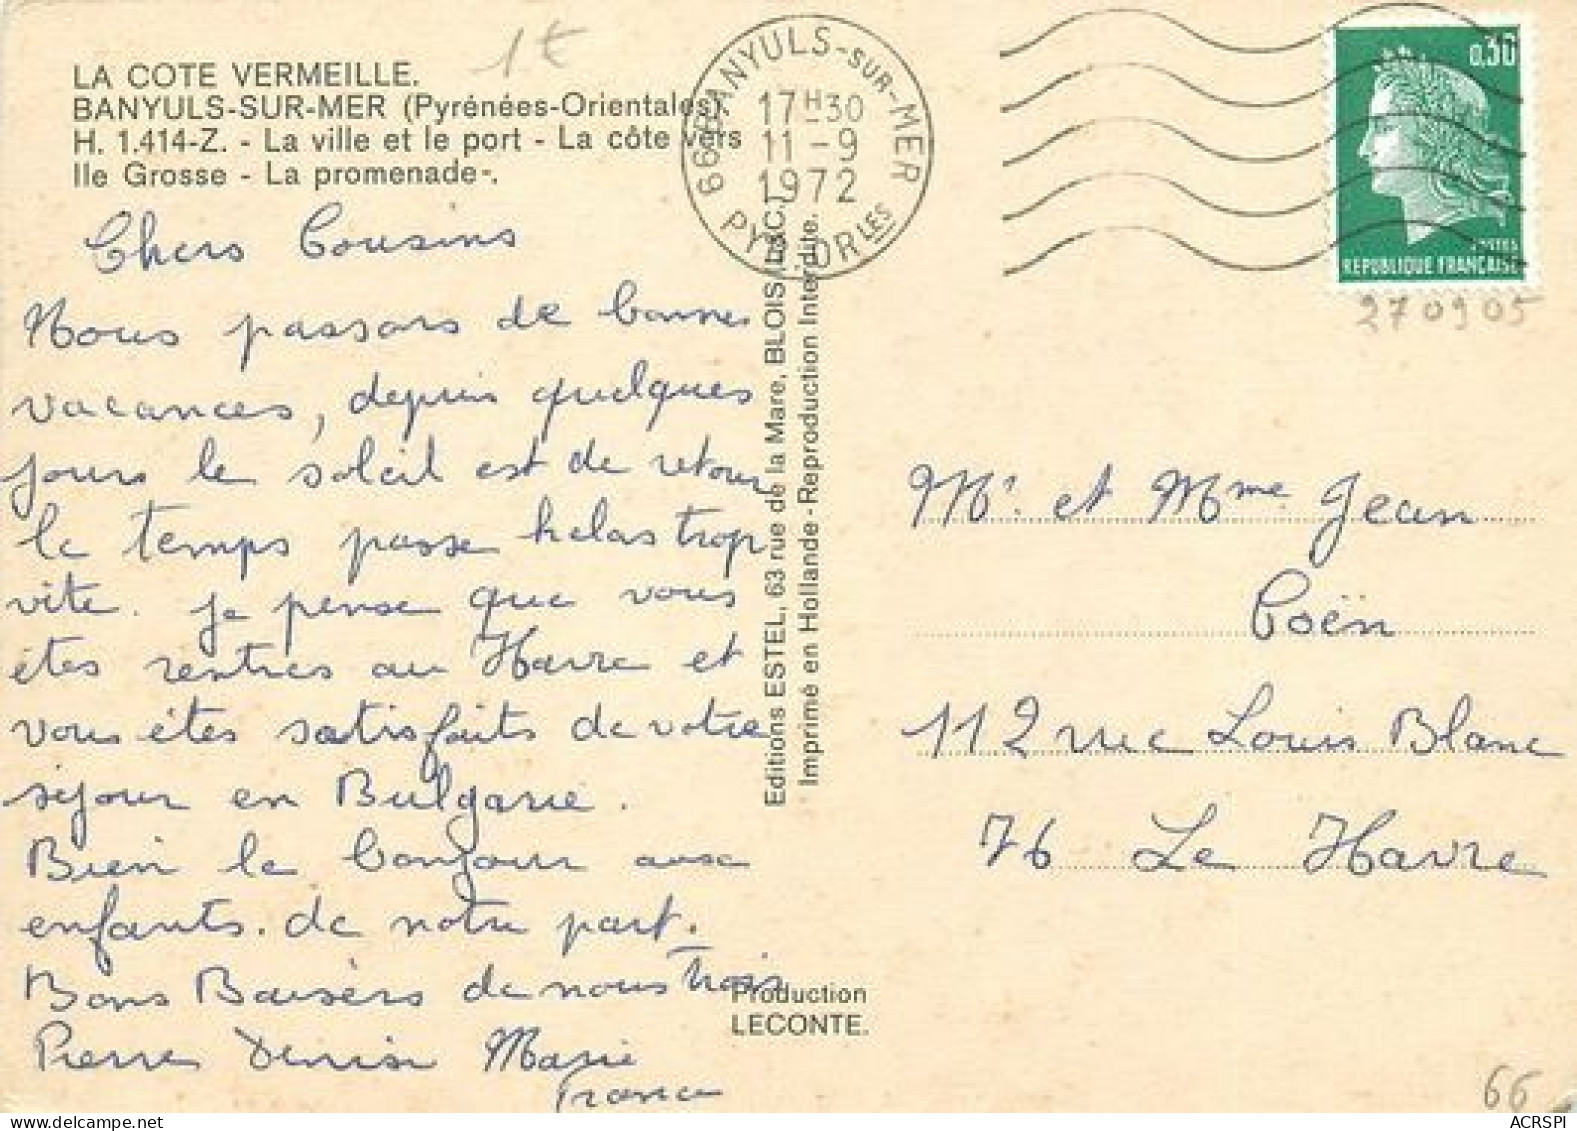 1€
LA COTE VERMEILLE.
BANYULS-SUR-MER (Pyrénées-Orientales).
H. 1.414-Z. - La ville et le port - La côte vers
Ile Grosse - La promenade-.
66 BANYULS-SUR-MER
17H30
11-9
1972
PYR.-ORLES
0,30
POSTES
REPUBLIQUE FRANÇAISE
270905
Chers Cousins
Nous passons de bonnes
vacances, depuis quelques
jours le soleil est de retour
le temps passe helas trop
vite. je pense que vous
êtes rentres au Havre et
vous êtes satisfaits de votre
séjour en Bulgarie.
Bien le bonjour aux
enfants. de notre part.
Bons Baisers de nous trois
Pierre Denise Marie
France
Editions ESTEL, 63 rue de la Mare, BLOIS
Imprimé en Hollande-Reproduction Interdite.
Production
LECONTE.
Mr. et Mme Jean
Coën
112 rue Louis Blanc
76 Le Havre
66
ACRSPI